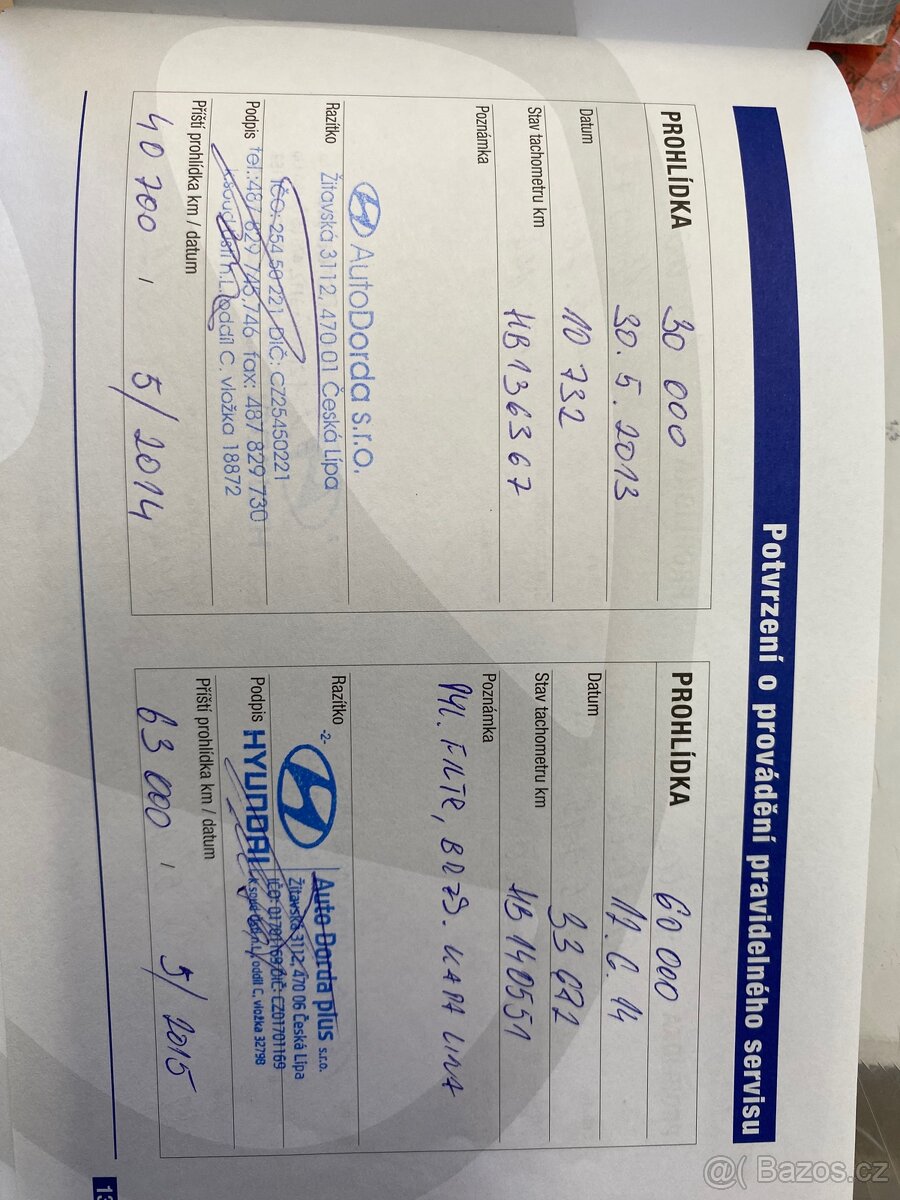 Potvrzení o provádění pravidelného servisu
PROHLÍDKA 30 000
Datum 30. 5. 2013
Stav tachometru km 10 732
Poznámka HB136367
Razítko
AutoDorda s.r.o.
Žitavská 3112, 470 01 Česká Lípa
IČO: 254 50 221 DIČ: CZ25450221
Podpis tel.: 487 829 745,746 fax: 487 829 730
oddíl C, vložka 18872
Příští prohlídka km / datum
40 700 , 5/2014
PROHLÍDKA 60 000
Datum
Stav tachometru km
Poznámka HB140551
PYL. FILTR, BRZD. KAPALINA
Razítko
-2-
Auto Dorda plus s.r.o.
Žitavská 3112, 470 06 Česká Lípa
IČO: 01701169 DIČ: CZ01701169
oddíl C, vložka 32798
Podpis HYUNDAI
Příští prohlídka km / datum
63 000 , 5/2015
13
@( Bazos.cz